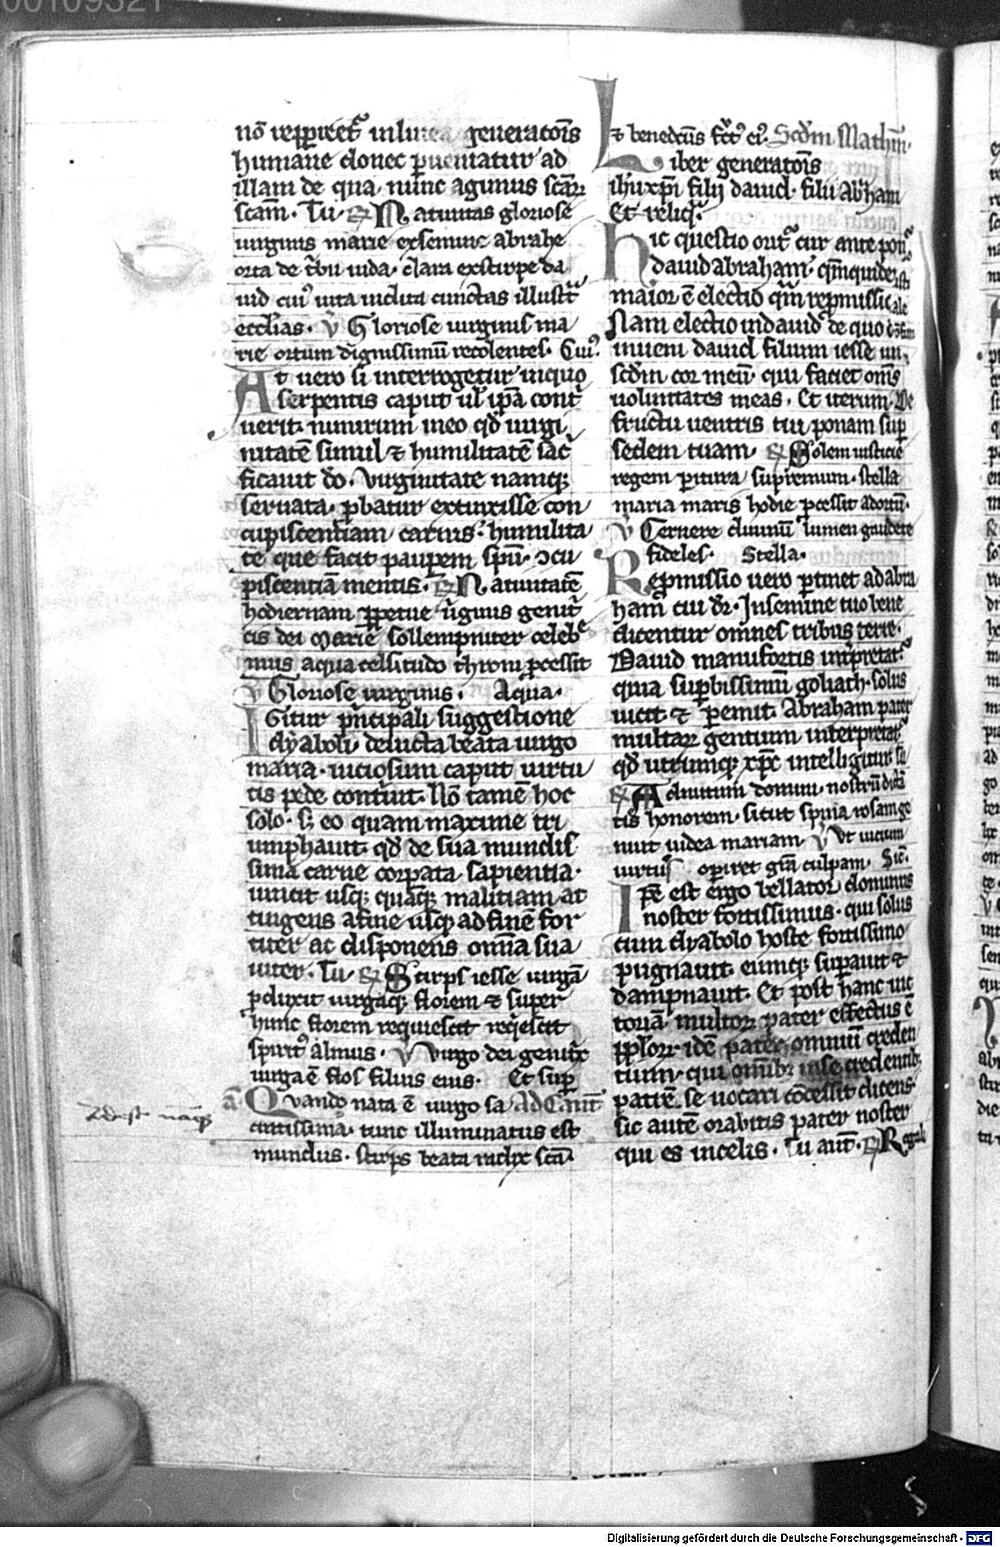 nō repperiet᷑ in linea generatōis
humane donec pueniatur ad
illam de qua nunc agimus scām
scām. Tu. R Natiuitas gloriose
uirginis marie ex semine abrahe
orta de tribu iuda clara ex stirpe da
uid cui᷒ uita inclita cunctas illustrat
ecclias. V̄ Gloriose uirginis ma
rie ortum dignissimū recolentes. Cui᷒.
At uero si interrogetur in quo
serpentis caput ul ip̄a cont
uerit nimirum in eo qd uirgi
nitatē simul ⁊ humilitatē sac̄
ficauit dō. Virginitate namq;
seruata pbatur extinxisse con
cupiscentiam carnis. humilita
te que facit paupem spū. ↄcu
piscentiā mentis. R Natiuitatē
hodiernam ppetue uginis genit
cis dei Marie sollempniter celeb
mus a qua celsitudo throni pcessit
V̄ Gloriose uirginis. A qua.
Igitur pncipali suggestione
dyaboli deuicta beata uirgo
maria uiciosum caput uirtu
tis pede contiuit. Nō tamē hoc
solo. s; eo quam maxime tri
umphauit qd de sua mundis
sima carne corpata sapientia
uincit usq; quaq; malitiam at
tingens a fine usq; ad finē for
titer ac disponens omīa sua
uiter. Tu. R Stirps iesse uirgā
pduxit uirgaq; florem ⁊ super
hunc florem requiescit reqescit
spirit᷒ almus. V̄ Virgo dei genitx
uirga ē flos filius eius. Et sup
a Quando nata ē uirgo sa Ad Cant
cratissima tunc illuminatus est
mundus. stirps beata radix scā
⁊ benedctus fct ei᷒. Scdm Math̄m.
Liber generatōis
ih̄u xp̄i filii dauid. filii Abham
Et reliq.
Hic questio orit᷑ cur ante pon᷑
dauid abraham. qm quidē
maior ē electio qm repmissio
Nam electio in dauid de quo
inueni dauid filium iesse ui
scdm cor meū qui faciet om̄s
uoluntates meas. Et iterum De
fructu uentris tui ponam sup
sedem tuam. R Solem iusticie
regem paritura supremum. stella
maria maris hodie pcessit ad ortū.
V̄ Cernere diuinū lumen gaudete
fideles. Stella.
Repmissio uero ptinet ad abra
ham cui dr. In semine tuo bene
dicentur omnes tribus terre.
Dauid manu fortis intpretat᷑
quia supbissimū goliath solus
uicit ⁊ pemit. Abraham pater
multaꝝ gentium interpretat᷑
qd utrumq; xpc intelligitur
R Ad nutum domini nostrū
tis honorem. sicut spina rosam ge
nuit iudea mariam V̄ Vt uicium
uirtus operiret gra culpam. Sic̄.
Ipse est ergo bellator dominus
noster fortissimus. qui solus
cum dyabolo hoste fortissimo
pugnauit. eumq; supauit ⁊
dampnauit. Et post hanc uic
toriā multoꝝ pater effectus ē
pploꝝ. idē pater omniū creden
tium. qui omib; in se credentib;
patrē se uocari cōcessit dicens
sic autē orabitis pater noster
qui es in celis. Tu aut. R Regali
Digitalisierung gefördert durch die Deutsche Forschungsgemeinschaft - DFG